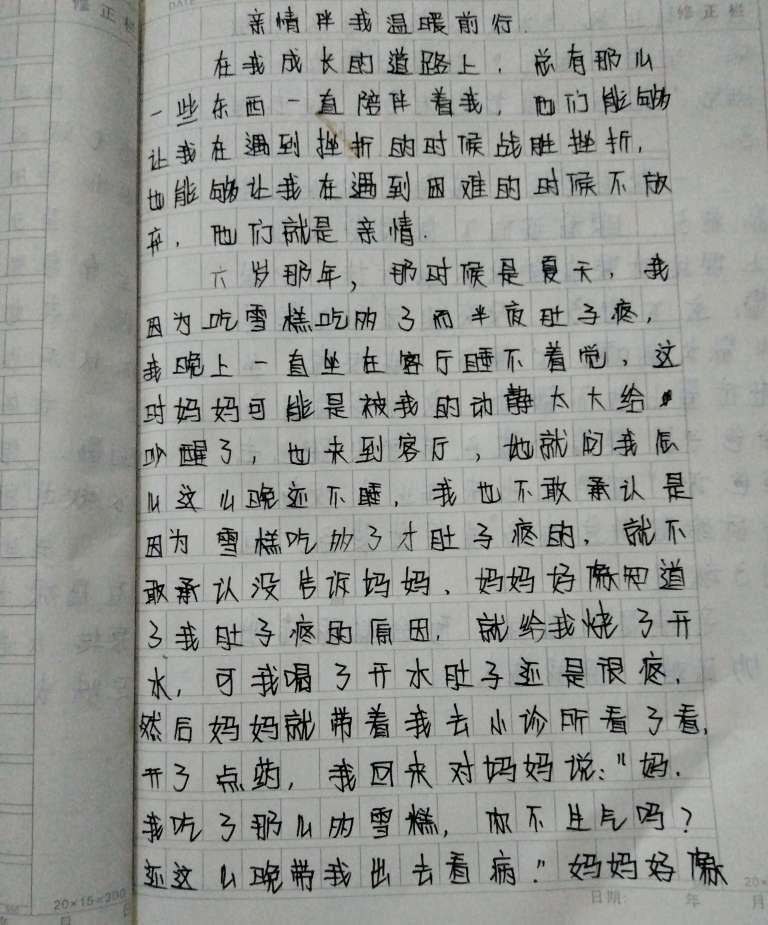 修正栏
DATE
修正栏
亲情伴我温暖前行.
在我成长的道路上,总有那么
一些东西一直陪伴着我,他们能够
让我在遇到挫折的时候战胜挫折,
也能够让我在遇到困难的时候不放
弃,他们就是亲情.
六岁那年,那时候是夏天,我
因为吃雪糕吃的多了而半夜肚子疼,
我晚上一直坐在客厅睡不着觉,这
时妈妈可能是被我的动静太大给
吵醒了,也来到客厅,她就问我怎
么这么晚还不睡,我也不敢承认是
因为雪糕吃多了才肚子疼的,就不
敢承认没告诉妈妈,妈妈好像知道
了我肚子疼的原因,就给我烧了开
水,可我喝了开水肚子还是很疼,
然后妈妈就带着我去小诊所看了看,
开了点药,我回来对妈妈说:"妈,
我吃了那么多雪糕,你不生气吗?
还这么晚带我出去看病."妈妈好像
20×15=300
日期: 年 月